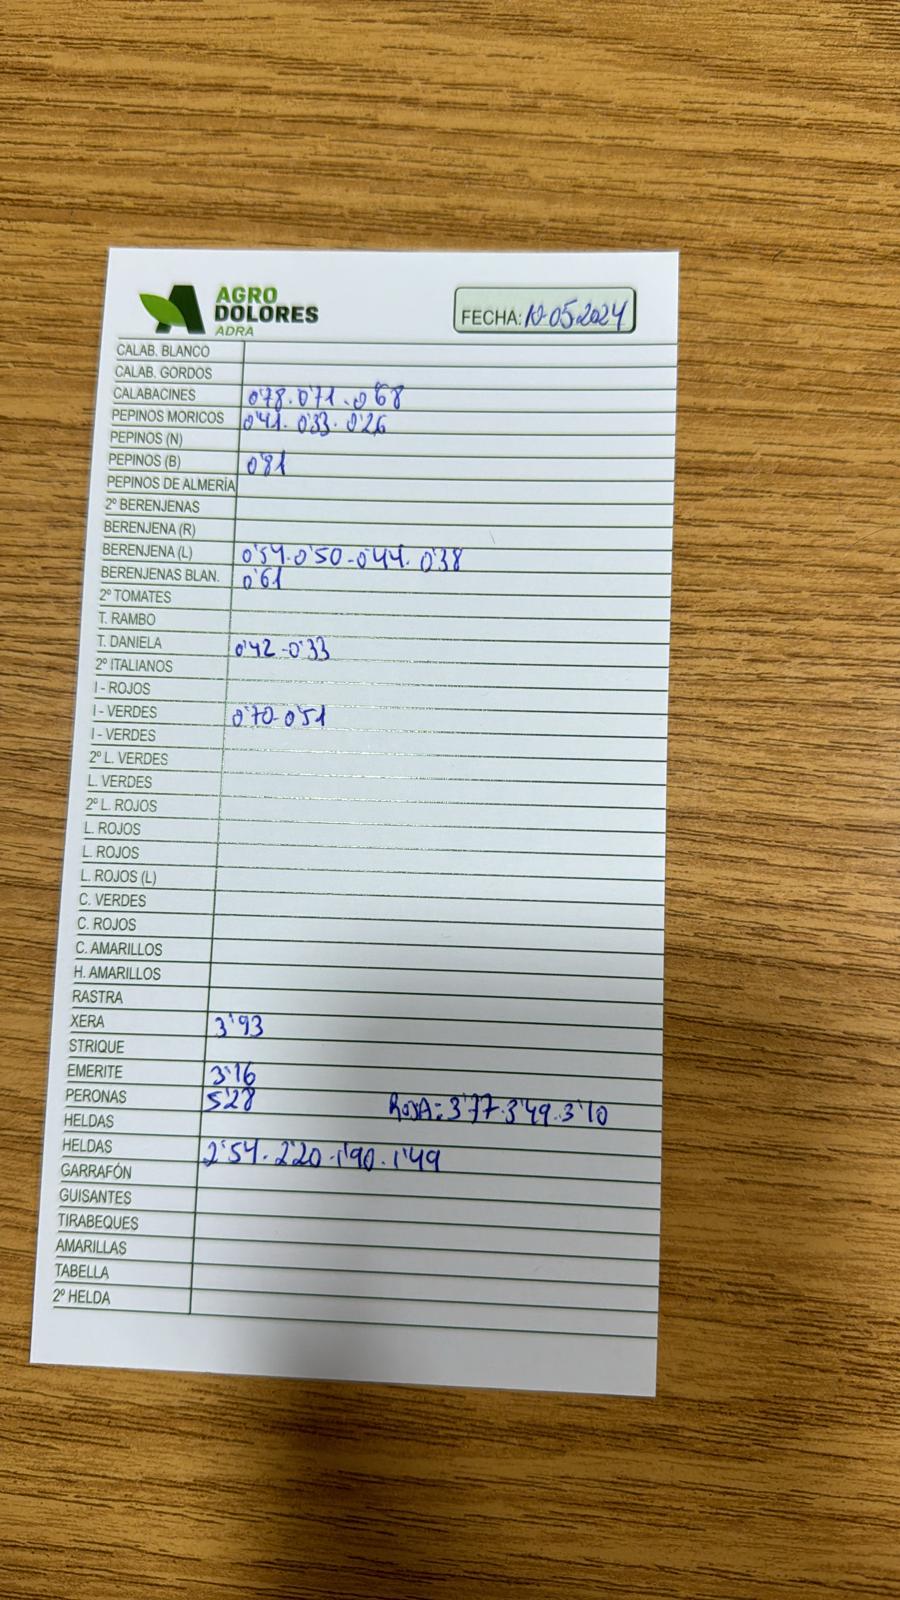 AGRO
DOLORES
ADRA
FECHA: 10-05-2024
CALAB. BLANCO
CALAB. GORDOS
CALABACINES 0'78 . 0'71 - 0'68
PEPINOS MORICOS 0'41 . 0'33 . 0'26
PEPINOS (N)
PEPINOS (B) 0'81
PEPINOS DE ALMERÍA
2º BERENJENAS
BERENJENA (R)
BERENJENA (L) 0'54 . 0'50 - 0'44 . 0'38
BERENJENAS BLAN. 0'61
2º TOMATES
T. RAMBO
T. DANIELA 0'42 - 0'33
2º ITALIANOS
I - ROJOS
I - VERDES 0'70 - 0'51
I - VERDES
2º L. VERDES
L. VERDES
2º L. ROJOS
L. ROJOS
L. ROJOS
L. ROJOS (L)
C. VERDES
C. ROJOS
C. AMARILLOS
H. AMARILLOS
RASTRA
XERA 3'93
STRIQUE
EMERITE 3'16
PERONAS 5'28 ROJA = 3'77 . 3'49 . 3'10
HELDAS
HELDAS 2'54 . 2'20 - 1'90 . 1'49
GARRAFÓN
GUISANTES
TIRABEQUES
AMARILLAS
TABELLA
2º HELDA